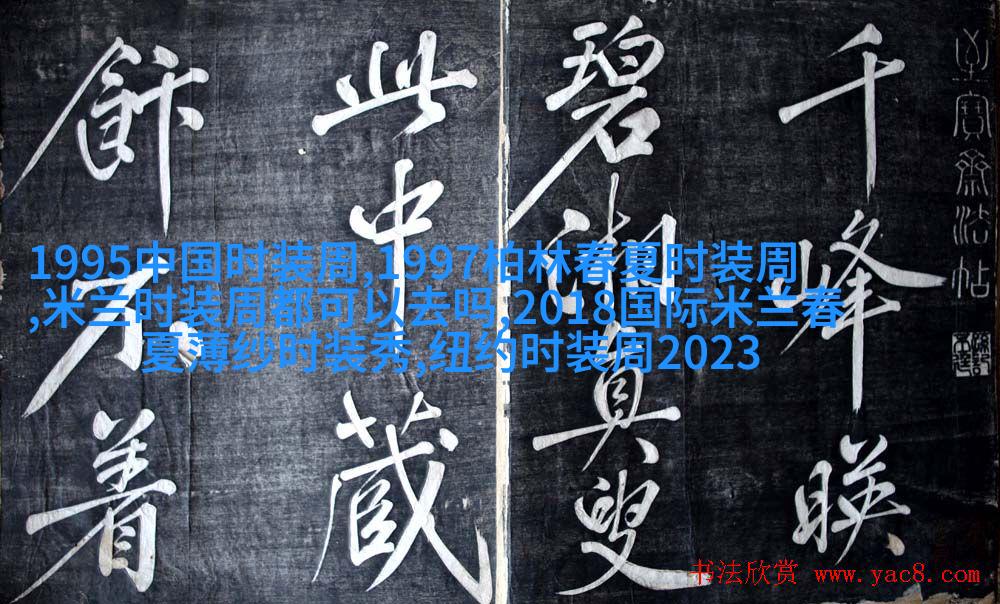 至寶齋法帖
千峰映
碧湘真叟
此中藏
飰不着
1995中国时装周,1997柏林春夏时装周
,米兰时装周都可以去吗,2018国际米兰春
夏薄纱时装秀,纽约时装周2023
书法欣赏 www.yac8.com